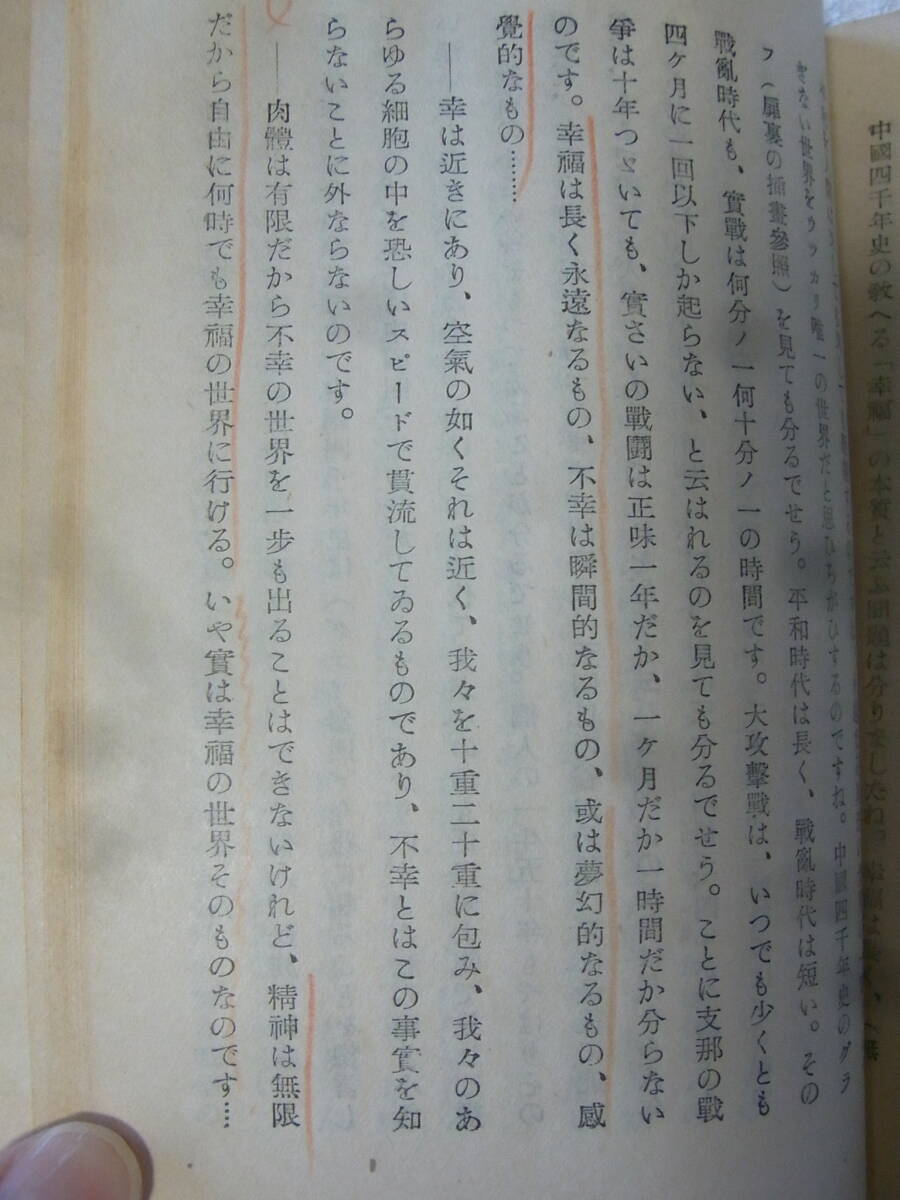 中國四千年史の教へる「幸福」の本質と云ふ問題は分りましたね。幸福は
きない世界をウツカリ唯一の世界だと思ひちがひするのですね。中國四千年史のグラ
フ(扉裏の插畫參照)を見ても分るでせう。平和時代は長く、戰亂時代は短い。その
戰亂時代も、實戰は何分ノ一何十分ノ一の時間です。大攻擊戰は、いつでも少くとも
四ケ月に一回以下しか起らない、と云はれるのを見ても分るでせう。ことに支那の戰
爭は十年つゞいても、實さいの戰鬪は正味一年だか、一ケ月だか一時間だか分らない
のです。幸福は長く永遠なるもの、不幸は瞬間的なるもの、或は夢幻的なるもの、感
覺的なもの………
――幸は近きにあり、空氣の如くそれは近く、我々を十重二十重に包み、我々のあ
らゆる細胞の中を恐しいスピードで貫流してゐるものであり、不幸とはこの事實を知
らないことに外ならないのです。
――肉體は有限だから不幸の世界を一步も出ることはできないけれど、精神は無限
だから自由に何時でも幸福の世界に行ける。いや實は幸福の世界そのものなのです…